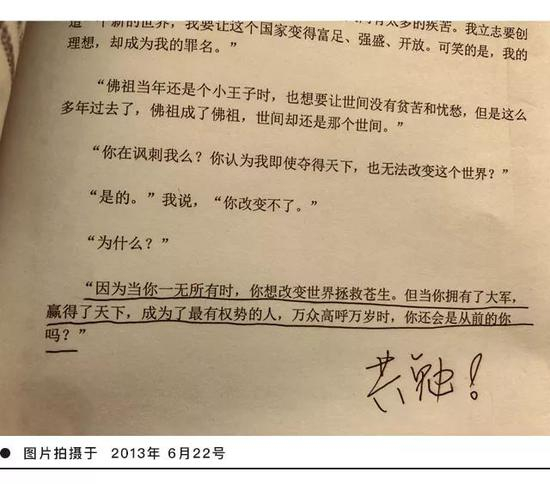 有太多的疾苦。我立志要创
一个新的世界，我要让这个国家变得富足、强盛、开放。可笑的是，我的
理想，却成为我的罪名。”
“佛祖当年还是个小王子时，也想要让世间没有贫苦和忧愁，但是这么
多年过去了，佛祖成了佛祖，世间却还是那个世间。”
“你在讽刺我么？你认为我即使夺得天下，也无法改变这个世界？”
“是的。”我说，“你改变不了。”
“为什么？”
“因为当你一无所有时，你想改变世界拯救苍生。但当你拥有了大军，
赢得了天下，成为了最有权势的人，万众高呼万岁时，你还会是从前的你
吗？”
共勉！
● 图片拍摄于 2013年 6月22号